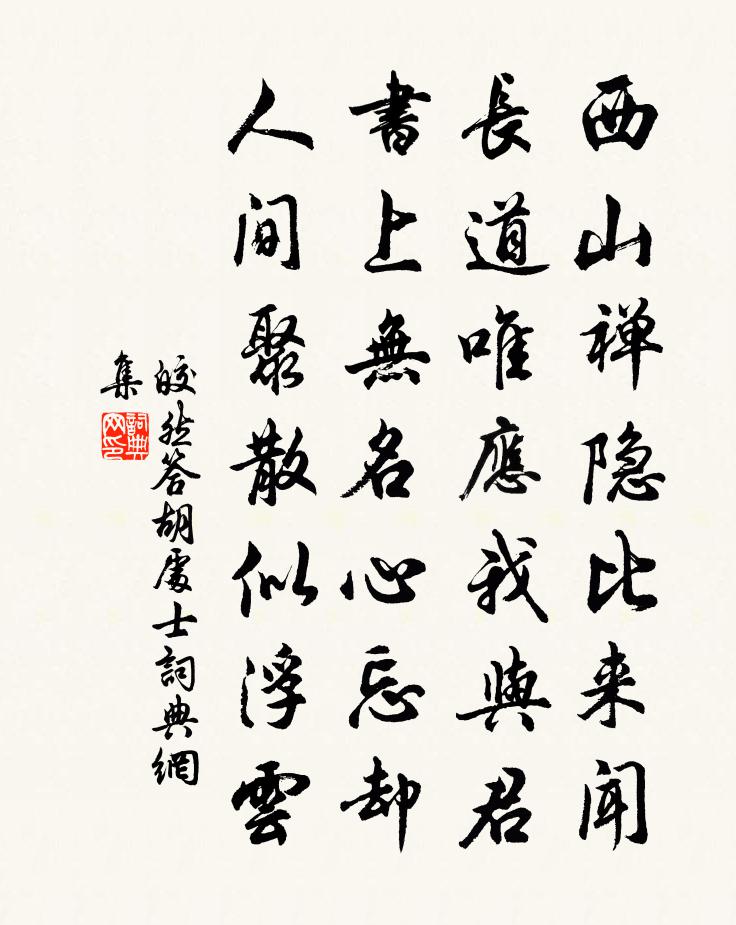 西山禅隐比来闻
長道唯應我與君
書上無名心忘却
人间聚散似浮雲
皎然答胡處士詞典網
集
詞典
网印